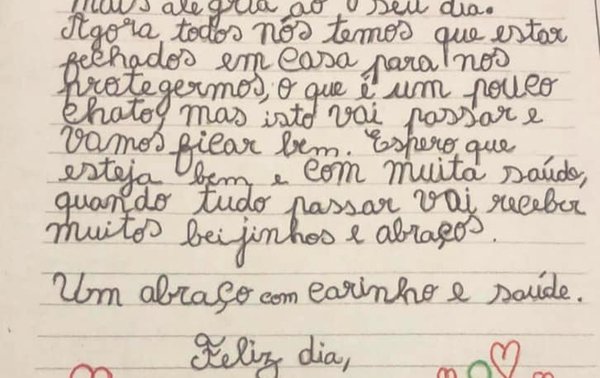 mais alegria ao seu dia.
Agora todos nós temos que estar
fechados em casa para nos
protegermos, o que é um pouco
chato, mas isto vai passar e
vamos ficar bem. Espero que
esteja bem e com muita saúde,
quando tudo passar vai receber
muitos beijinhos e abraços.
Um abraço com carinho e saúde.
Feliz dia,